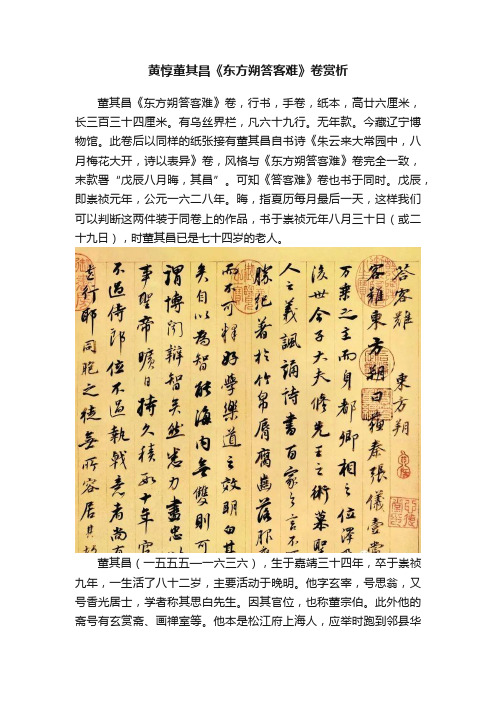 黄惇董其昌《东方朔答客难》卷赏析
董其昌《东方朔答客难》卷，行书，手卷，纸本，高廿六厘米，
长三百三十四厘米。有乌丝界栏，凡六十九行。无年款。今藏辽宁博
物馆。此卷后以同样的纸张接有董其昌自书诗《朱云来大常园中，八
月梅花大开，诗以表异》卷，风格与《东方朔答客难》卷完全一致，
末款署“戊辰八月晦，其昌”。可知《答客难》卷也书于同时。戊辰，
即崇祯元年，公元一六二八年。晦，指夏历每月最后一天，这样我们
可以判断这两件装于同卷上的作品，书于崇祯元年八月三十日（或二
十九日），时董其昌已是七十四岁的老人。
答客難 東方朔
客難東方朔曰蘇秦張儀壹當
万乘之主而身都卿相之位澤及
後世今子大夫修先王之術慕聖
人之義諷誦詩書百家之言不可
勝紀著於竹帛脣腐齒落服
而不可釋好學樂道之效明白甚
矣自以為智能海內無雙則可
謂博聞辯智矣然悉力盡忠以
事聖帝曠日持久積數十年官
不過侍郎位不過執戟意者尚有
遺行耶同胞之徒無所容居其故
董其昌（一五五五—一六三六），生于嘉靖三十四年，卒于崇祯
九年，一生活了八十二岁，主要活动于晚明。他字玄宰，号思翁，又
号香光居士，学者称其思白先生。因其官位，也称董宗伯。此外他的
斋号有玄赏斋、画禅室等。他本是松江府上海人，应举时跑到邻县华